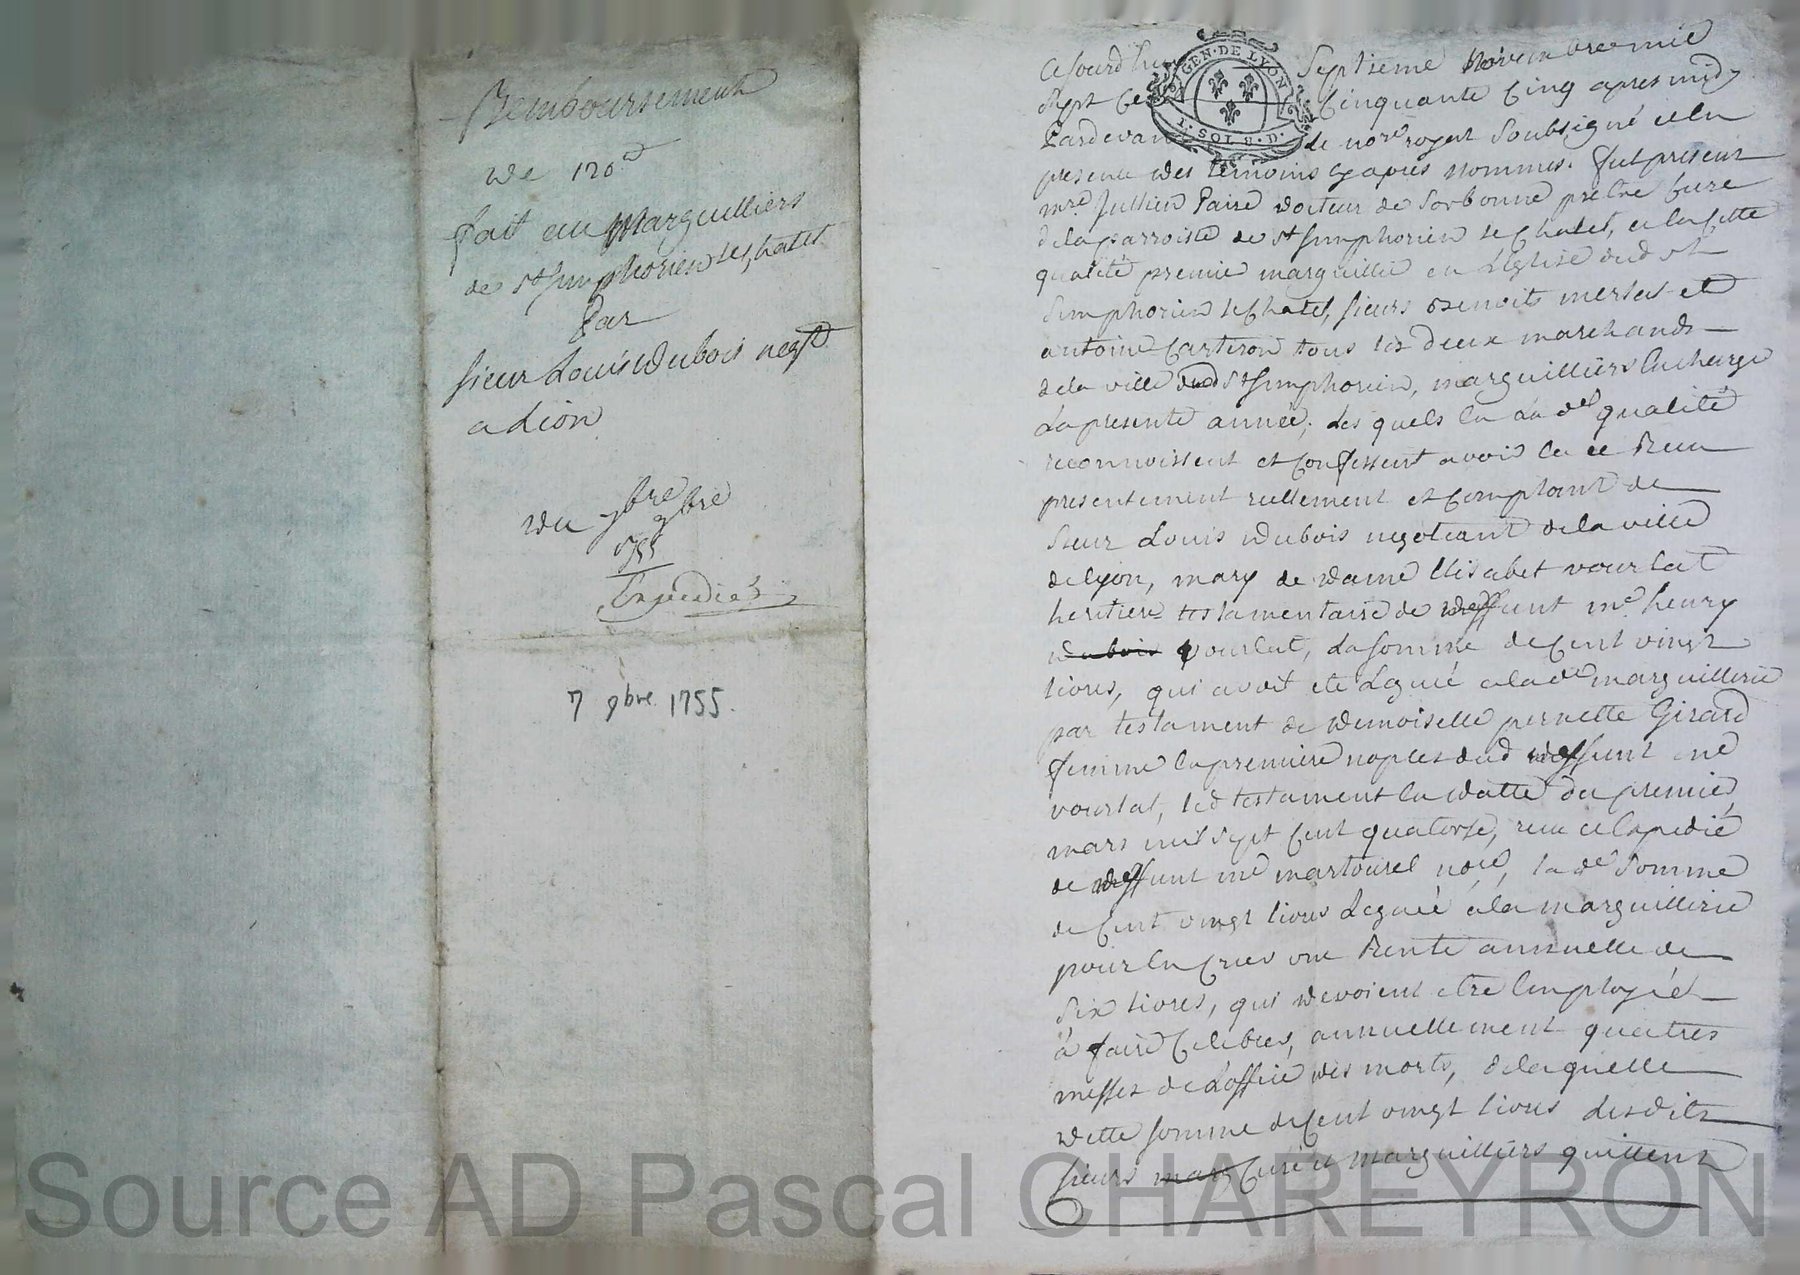 Remboursement
de 120#
fait au Marguilliers
de st simphorien le chatel
Par
sieur Louis Dubois negt
a Lion
du 9bre 9bre
1755
Expedié
7 9bre 1755.
Cejourd'huy Septieme Novembre mil
sept ce cinquante cinq apres midy
Pardevan de nore royal soubsigné et en
presence des temoins cy apres nommés. fut present
mre Jullien Paire docteur de Sorbonne pretre Curé
de la parroisse de st simphorien le Chatel, et en cette
qualité premie marguillie en L'Eglise dud st
Simphorien le Chatel, sieurs Benoit mersas et
antoine Carteron tous les deux marchands
de la ville dud st simphorien, marguilliers En charge
La presente année, Les quels en La de qualité
reconnoissent et Confessent avoir eu et Receu
presentement reellement et comptant de
Sieur Louis Dubois negotiant de la ville
de lyon, mary de dame Elisabet vourlat
heritiere testamentaire de deffunt me henry
Dubois vourlat, La somme de Cent vingt
livres, qui avoit ete Leguée a la de marguillerie
par testament de Demoiselle pernette Girard
femme En premiere nopces dud deffunt me
vourlat, led testament En datte du premier
mars mil sept Cent quatorse, receu et Expedié
de deffunt me martourel nore, la de somme
de Cent vingt livres Leguée a la marguillerie
pour En Creer une Rente annuelle de
Six livres, qui devoient etre Employés
a faire Celebrer, annuellement quatres
messes de L'office des morts, de laquelle
dette somme de Cent vingt livres Lesdits
sieurs marg Curé et Marguilliers quittent
GEN·DE LYON
1·SOL 8·D·
Source AD Pascal CHAREYRON